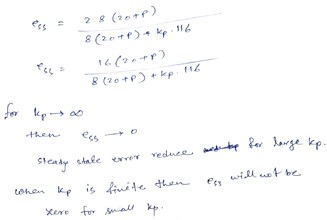 ess = 2 8 (20+P) / 8 (20+P) + Kp. 116
ess = 16 (20+P) / 8 (20+P) + Kp. 116
for Kp → ∞
then ess → 0
Steady state error reduce for large Kp.
when Kp is finite then ess will not be
zero for small Kp.